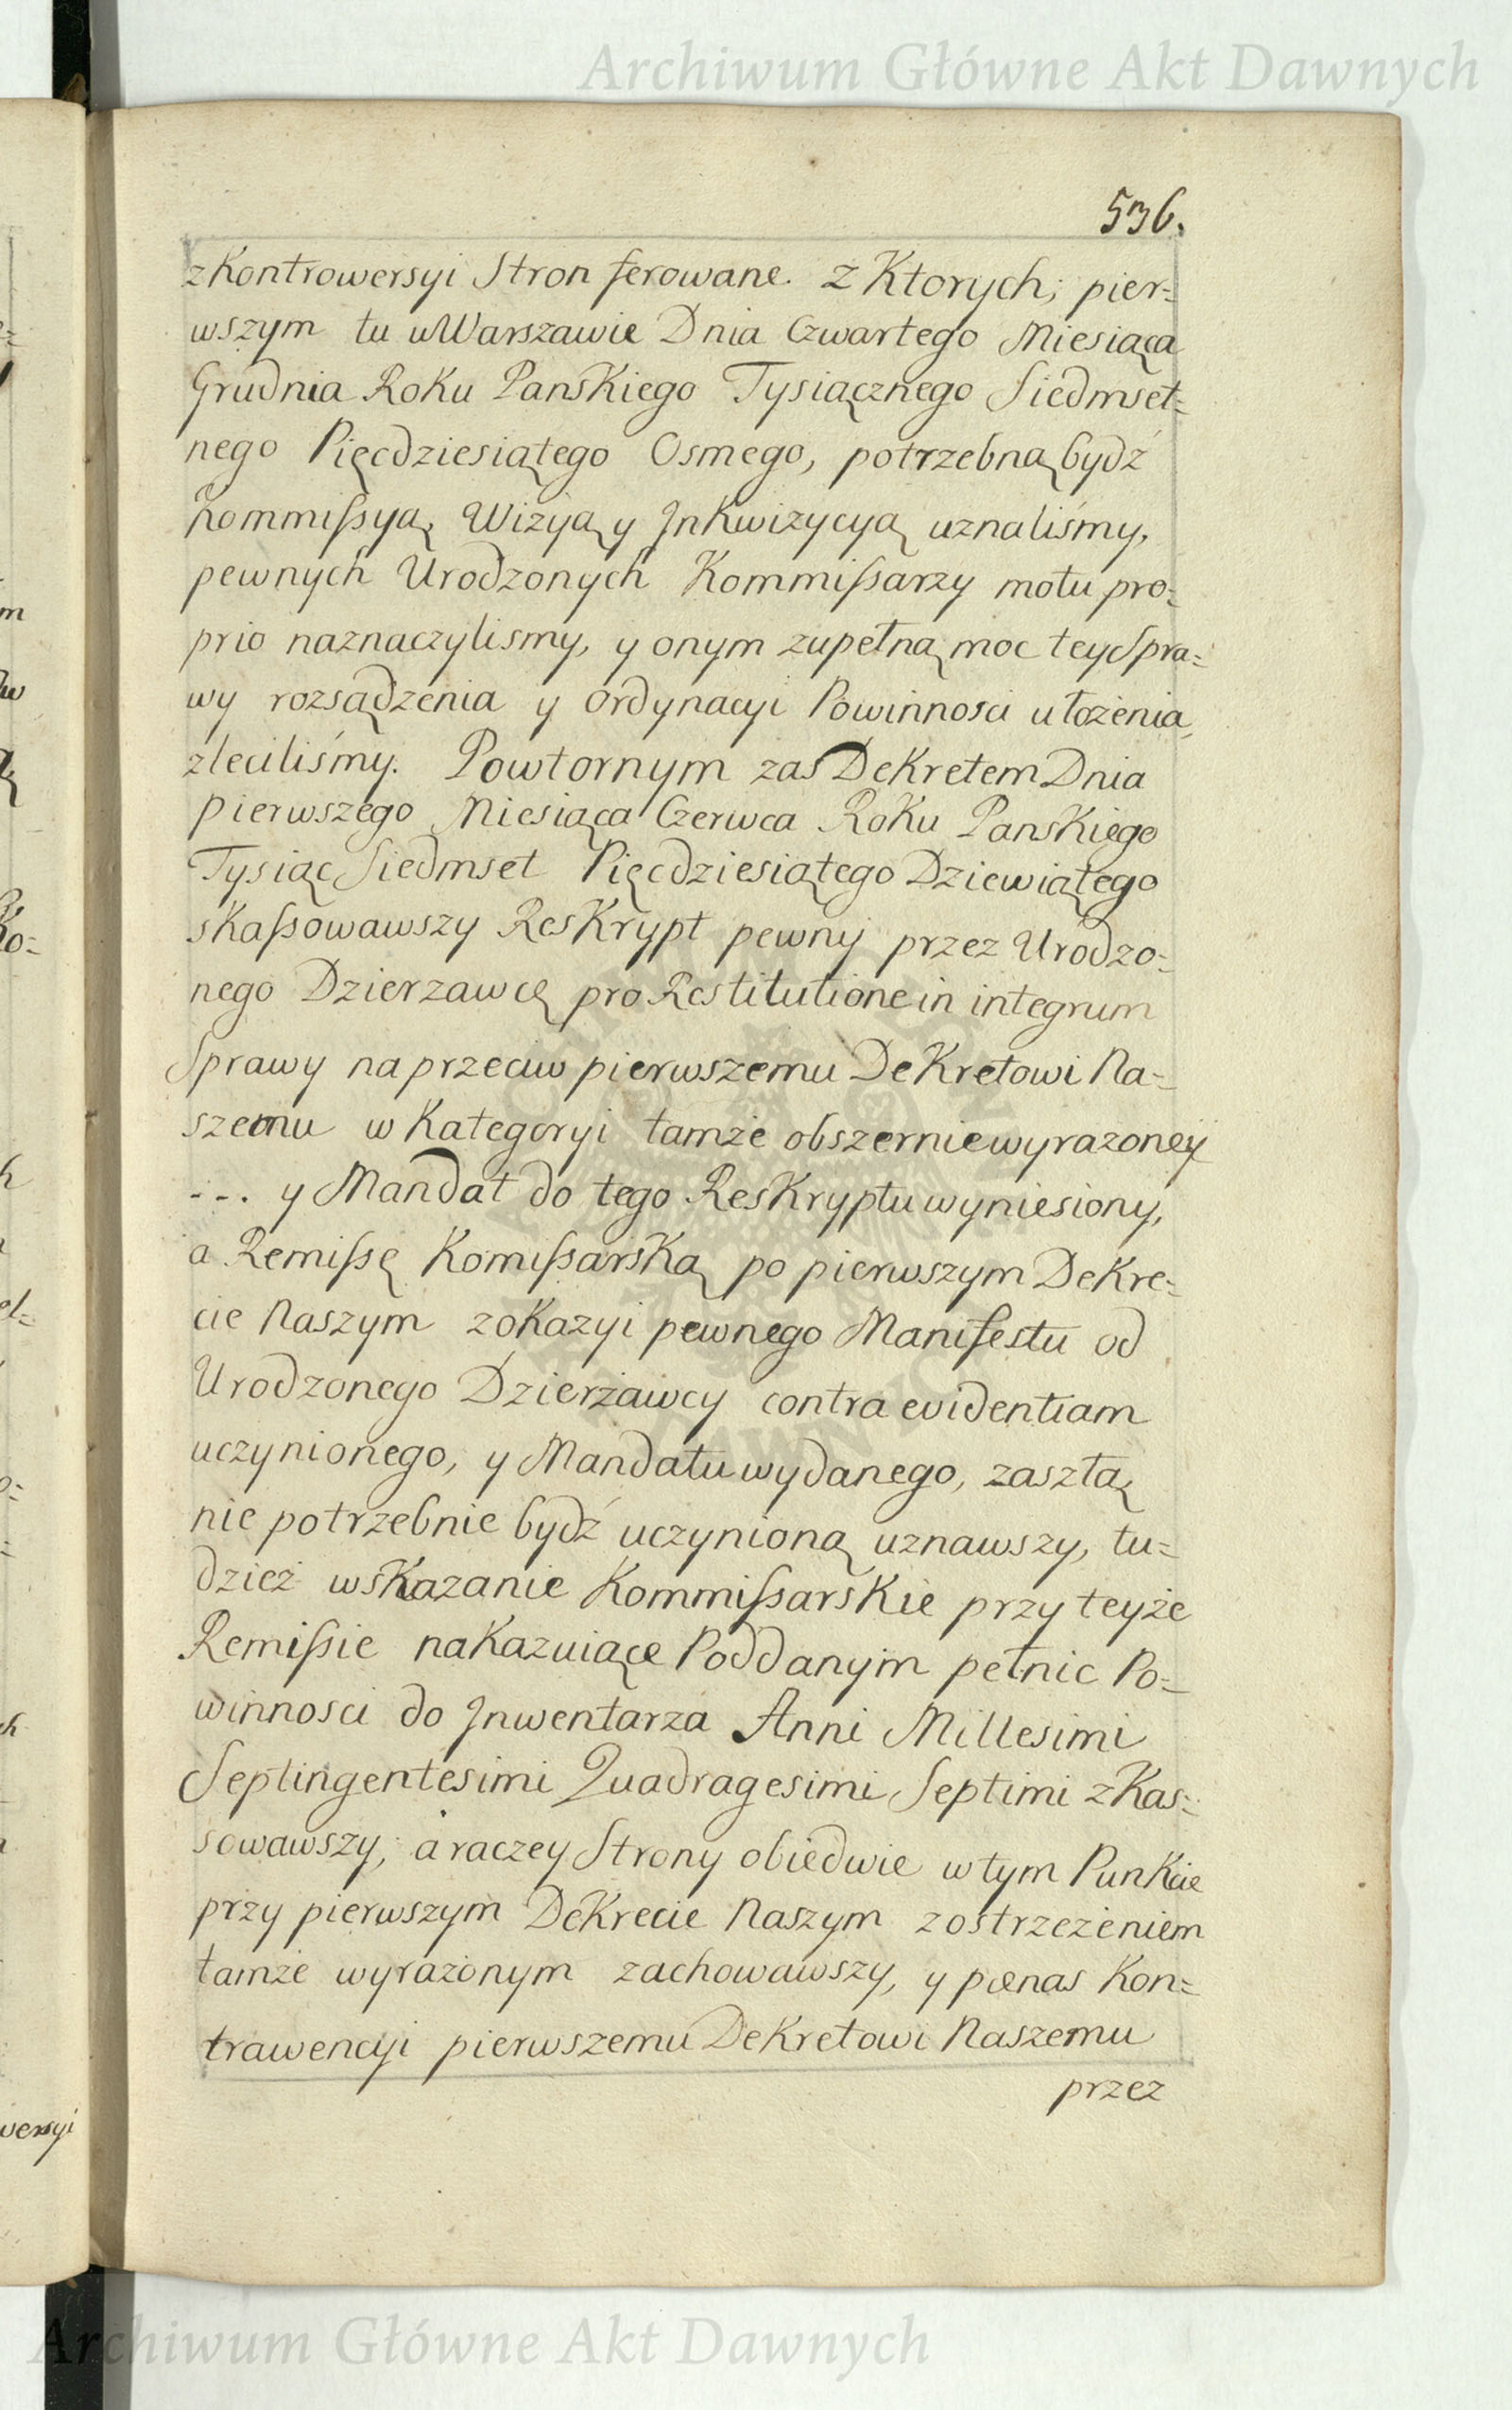 Archiwum Główne Akt Dawnych
536.
z Kontrowersyi Stron ferowane. z Ktorych; pier=
wszym tu w Warszawie Dnia Czwartego Miesiąca
Grudnia Roku Panskiego Tysiącznego Siedmset=
nego Pięcdziesiątego Osmego, potrzebną bydź
Kommißyą, Wizyą y Jnkwizycyą uznaliśmy,
pewnych Urodzonych Kommißarzy motu pro=
prio naznaczylismy, y onym zupełną moc tey Spra=
wy rozsądzenia y Ordynacyi Powinnosci ułożenia,
zleciliśmy. Powtornym zas Dekretem Dnia
Pierwszego Miesiąca Czerwca Roku Panskiego
Tysiąc Siedmset Pięcdziesiątego Dziewiątego
skaßowawszy Reskrypt pewny przez Urodzo=
nego Dzierzawcę pro Restitutione in integrum
Sprawy naprzeciw pierwszemu Dekretowi Na=
szemu w Kategoryi tamże obszernie wyrazoney
---. y Mandat do tego Reskryptu wyniesiony,
a Remißę Komißarską po pierwszym Dekre=
cie Naszym z okazyi pewnego Manifestu od
Urodzonego Dzierżawcy contra evidentiam
uczynionego, y Mandatu wydanego, zaszłą
nie potrzebnie bydź uczynioną uznawszy, tu=
dzież wskazanie Kommißarskie przy teyże
Remißie nakazuiące Poddanym pełnic Po=
winnosci do Jnwentarza Anni Millesimi
Septingentesimi Quadragesimi Septimi zkas=
sowawszy, a raczey Strony obiedwie w tym Punkcie
przy pierwszym Dekrecie Naszym z ostrzeżeniem
tamże wyrażonym zachowawszy, y pœnas Kon=
trawencyi pierwszemu Dekretowi Naszemu
przez
Archiwum Główne Akt Dawnych